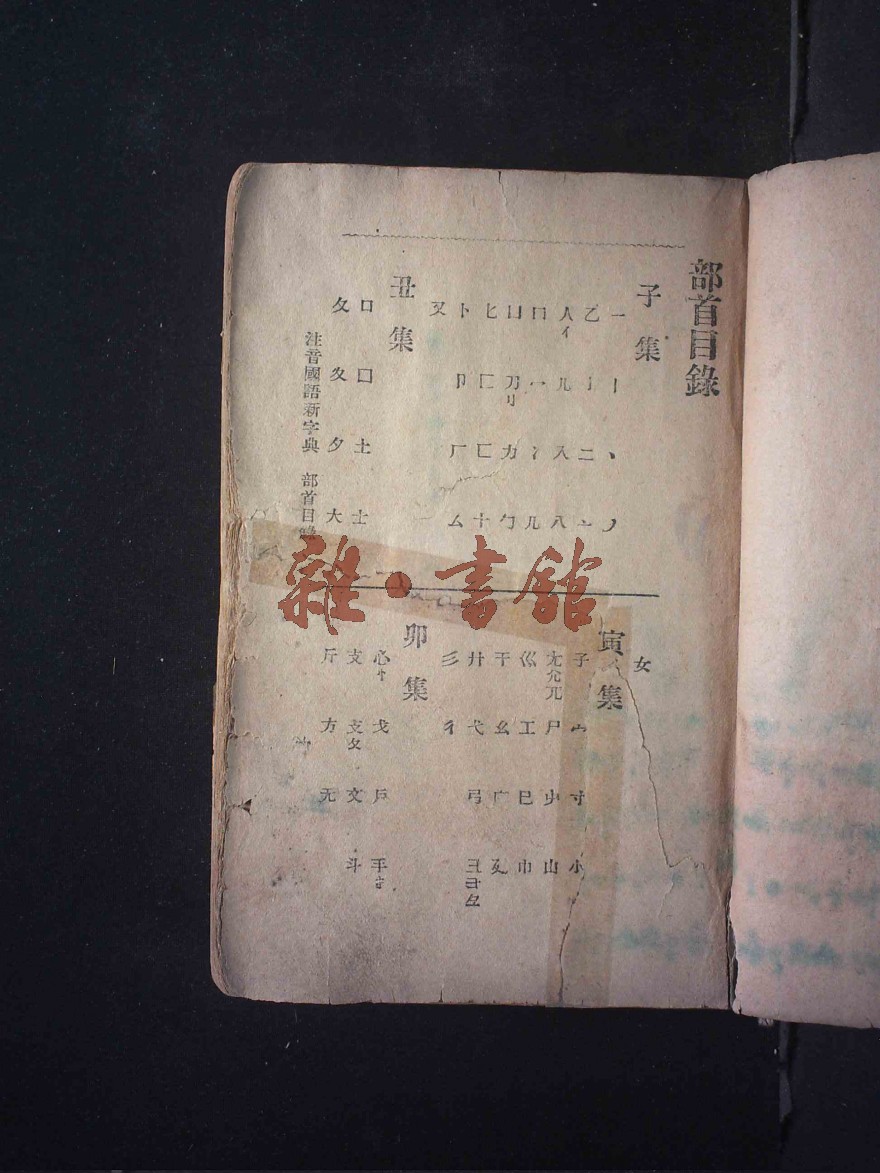 部首目錄
子集
一丨丶丿
乙亅二亠
人亻儿入八
冂冖冫几
凵刀刂力勹
匕匚匸十
卜卩厂厶
又
丑集
口囗土士
夂夊夕大
注音國語新字典 部首目錄
女
寅集
子宀寸小
尢尣兀尸屮山
巛工巳巾
干幺广廴
廾弋弓彐彑
彡彳
卯集
心忄戈戶手
支攴攵文斗
斤方无
雜·書館